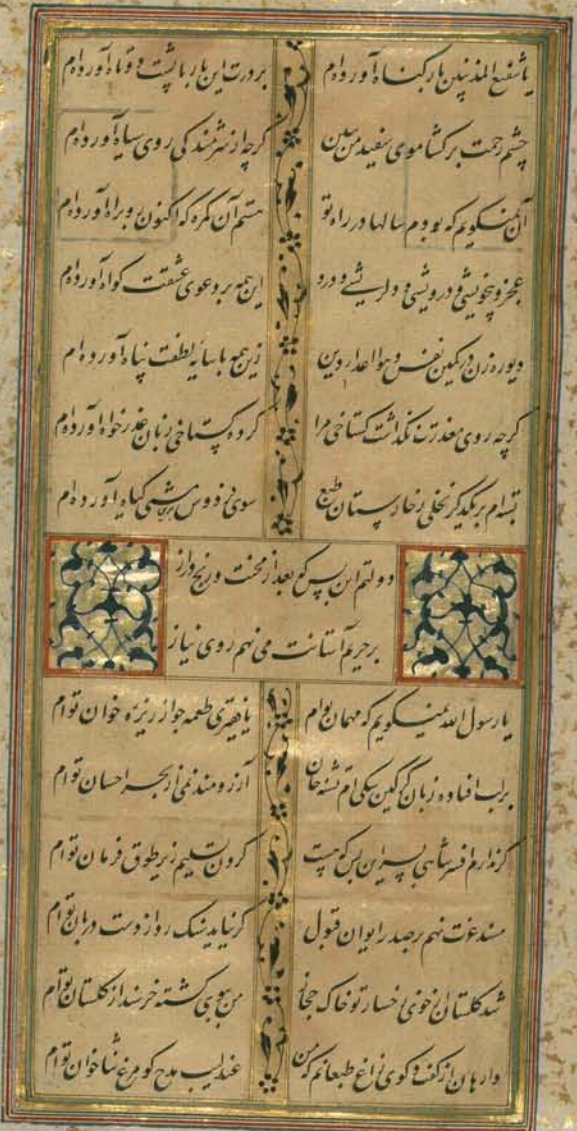 یا شفیع المذنبین بار گناه آورده‌ام بر درت این بار با پشت دوتاه آورده‌ام
چشم رحمت برگشا موی سفید من ببین گرچه از شرمندگی روی سیاه آورده‌ام
آن نمیگویم که بودم سالها در راه تو هستم آن گمره که اکنون رو براه آورده‌ام
عجز و بیخویشی و درویشی و دلریشی و درد این همه بر دعوی عشقت گواه آورده‌ام
دیو رهزن در کمین نفس و هوا اعدای دین زین همه با سایهٔ لطفت پناه آورده‌ام
گرچه روی معذرت نگذاشت گستاخی مرا کرده گستاخی زبان عذرخواه آورده‌ام
بسته‌ام بر یکدگر نخلی ز خارستان طبع سوی فردوس برین مشتی گیاه آورده‌ام
دولتم این بس که بعد از محنت و رنج دراز
بر حریم آستانت می نهم روی نیاز
یا رسول الله نمیگویم که مهمان توام یا فقیری طعمه جو از ریزهٔ خوان توام
بر لب افتاده زبان گرگین سگی‌ام تشنه جان آرزومند نمی از بحر احسان توام
گر ندارم افسر شاهی بسر این بس که هست گردن تسلیم زیر طوق فرمان توام
مسند عزت نهم بر صدر ایوان قبول گر نیاید سنگ رد از دست دربان توام
شد گلستان از خوی رخسار تو خاک حجاز من ببویی گشته خرسند از گلستان توام
وارهان از گفت و گوی زاغ طبعانم که من عندلیب مدح گو مرغ ثناخوان توام